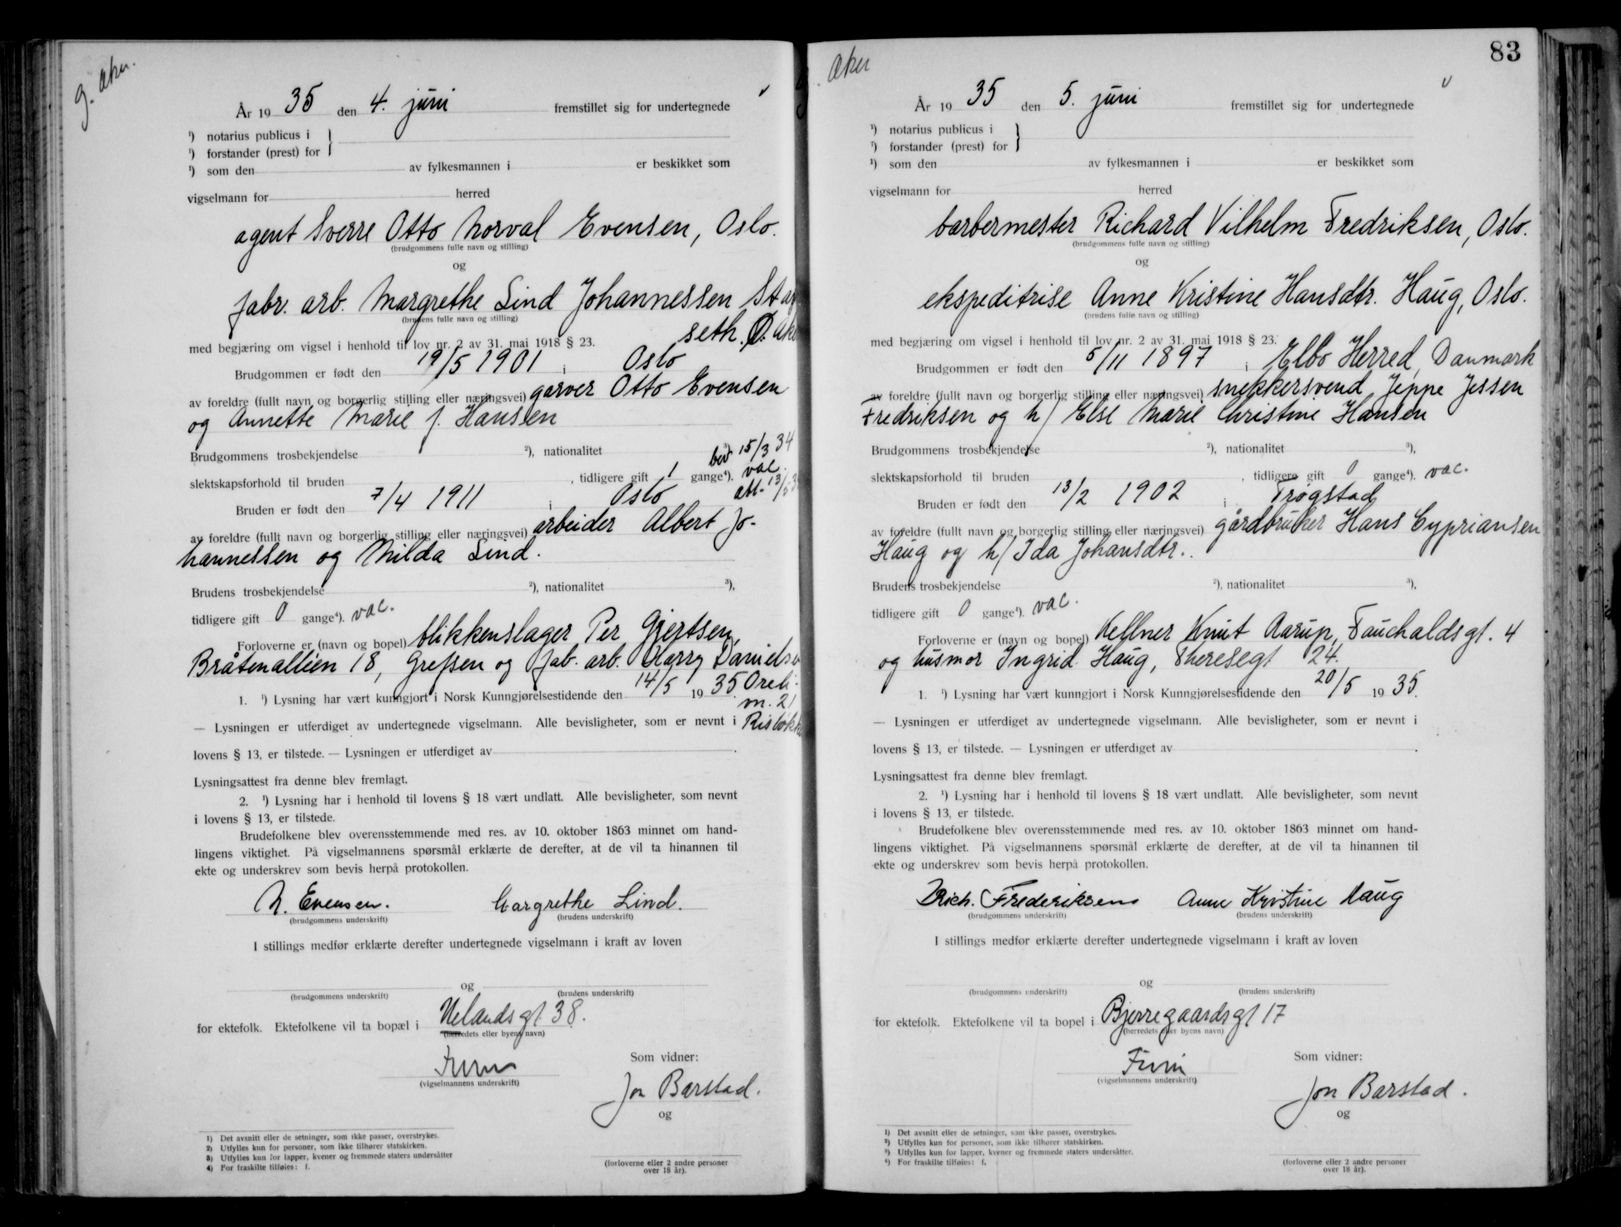 g. Aker.
År 1935 den 4. juni fremstillet sig for undertegnede
¹) notarius publicus i }
¹) forstander (prest) for
¹) som den av fylkesmannen i er beskikket som
vigselmann for herred
agent Sverre Otto Norval Evensen, Oslo.
(brudgommens fulle navn og stilling)
og
fabr. arb. Margrethe Lind Johannessen
(brudens fulle navn og stilling)
seth.
med begjæring om vigsel i henhold til lov nr. 2 av 31. mai 1918 § 23.
Brudgommen er født den 19/5 1901 i Oslo
av foreldre (fullt navn og borgerlig stilling eller næringsvei) garver Otto Evensen
og Annette Marie f. Hansen
Brudgommens trosbekjendelse ²), nationalitet ³),
bev. 15/3 34
slektskapsforhold til bruden , tidligere gift 1 gange⁴). vac.
att. 13/5
Bruden er født den 7/4 1911 i Oslo
av foreldre (fullt navn og borgerlig stilling eller næringsvei) arbeider Albert Jo-
hannessen og Milda Lind.
Brudens trosbekjendelse ²), nationalitet ³),
tidligere gift 0 gange⁴). vac.
Forloverne er (navn og bopel) blikkenslager Per Gjertsen
Bråtenalléen 18, Grefsen og fab. arb. Harry Daniels
1. ¹) Lysning har vært kunngjort i Norsk Kunngjørelsestidende den 14/5 1935.
— Lysningen er utferdiget av undertegnede vigselmann. Alle bevisligheter, som er nevnt i
lovens § 13, er tilstede. — Lysningen er utferdiget av .
Lysningsattest fra denne blev fremlagt.
2. ¹) Lysning har i henhold til lovens § 18 vært undlatt. Alle bevisligheter, som nevnt
i lovens § 13, er tilstede.
Brudefolkene blev overensstemmende med res. av 10. oktober 1863 minnet om hand-
lingens viktighet. På vigselmannens spørsmål erklærte de derefter, at de vil ta hinannen til
ekte og underskrev som bevis herpå protokollen.
N. Evensen. Margrethe Lind.
(brudgommens underskrift) (brudens underskrift)
I stillings medfør erklærte derefter undertegnede vigselmann i kraft av loven
og
(brudgommens underskrift) (brudens underskrift)
for ektefolk. Ektefolkene vil ta bopæl i Uelandsgt. 38.
(herredets eller byens navn)
(vigselmannens underskrift)
Som vidner:
Jon Barstad.
og
1) Det avsnitt eller de setninger, som ikke passer, overstrykes.
2) Utfylles kun for personer, som ikke tilhører statskirken.
3) Utfylles kun for lapper, kvener og fremmede staters undersåtter
4) For fraskilte tilføies: f.
(forloverne eller 2 andre personer
over 18 år).
Aker
83
År 1935 den 5. juni fremstillet sig for undertegnede
¹) notarius publicus i }
¹) forstander (prest) for
¹) som den av fylkesmannen i er beskikket som
vigselmann for herred
barbermester Richard Vilhelm Fredriksen, Oslo.
(brudgommens fulle navn og stilling)
og
ekspeditrise Anne Kristine Hansdtr. Haug, Oslo.
(brudens fulle navn og stilling)
med begjæring om vigsel i henhold til lov nr. 2 av 31. mai 1918 § 23.
Brudgommen er født den 5/11 1897 i Elbo Herred, Danmark
av foreldre (fullt navn og borgerlig stilling eller næringsvei) snekkersvend Jeppe Jessen
Fredriksen og h/ Else Marie Christine Hansen
Brudgommens trosbekjendelse ²), nationalitet ³),
slektskapsforhold til bruden , tidligere gift 0 gange⁴). vac.
Bruden er født den 13/2 1902 i Trøgstad
av foreldre (fullt navn og borgerlig stilling eller næringsvei) gårdbruker Hans Cypriansen
Haug og h/ Ida Johansdtr..
Brudens trosbekjendelse ²), nationalitet ³),
tidligere gift 0 gange⁴). vac.
Forloverne er (navn og bopel) kellner Knut Aarup, Fauchaldsgt. 4
og husmor Ingrid Haug, Theresegt 24.
1. ¹) Lysning har vært kunngjort i Norsk Kunngjørelsestidende den 20/5 1935.
— Lysningen er utferdiget av undertegnede vigselmann. Alle bevisligheter, som er nevnt i
lovens § 13, er tilstede. — Lysningen er utferdiget av .
Lysningsattest fra denne blev fremlagt.
2. ¹) Lysning har i henhold til lovens § 18 vært undlatt. Alle bevisligheter, som nevnt
i lovens § 13, er tilstede.
Brudefolkene blev overensstemmende med res. av 10. oktober 1863 minnet om hand-
lingens viktighet. På vigselmannens spørsmål erklærte de derefter, at de vil ta hinannen til
ekte og underskrev som bevis herpå protokollen.
Rich. Frederiksen Anne Kristine Haug
(brudgommens underskrift) (brudens underskrift)
I stillings medfør erklærte derefter undertegnede vigselmann i kraft av loven
og
(brudgommens underskrift) (brudens underskrift)
for ektefolk. Ektefolkene vil ta bopel i Bjerregaardsgt 17
(herredets eller byens navn)
(vigselmannens underskrift)
Som vidner:
Jon Barstad.
og
1) Det avsnitt eller de setninger, som ikke passer, overstrykes.
2) Utfylles kun for personer, som ikke tilhører statskirken.
3) Utfylles kun for lapper, kvener og fremmede staters undersåtter.
4) For fraskilte tilføies: f.
(forloverne eller 2 andre personer
over 18 år).